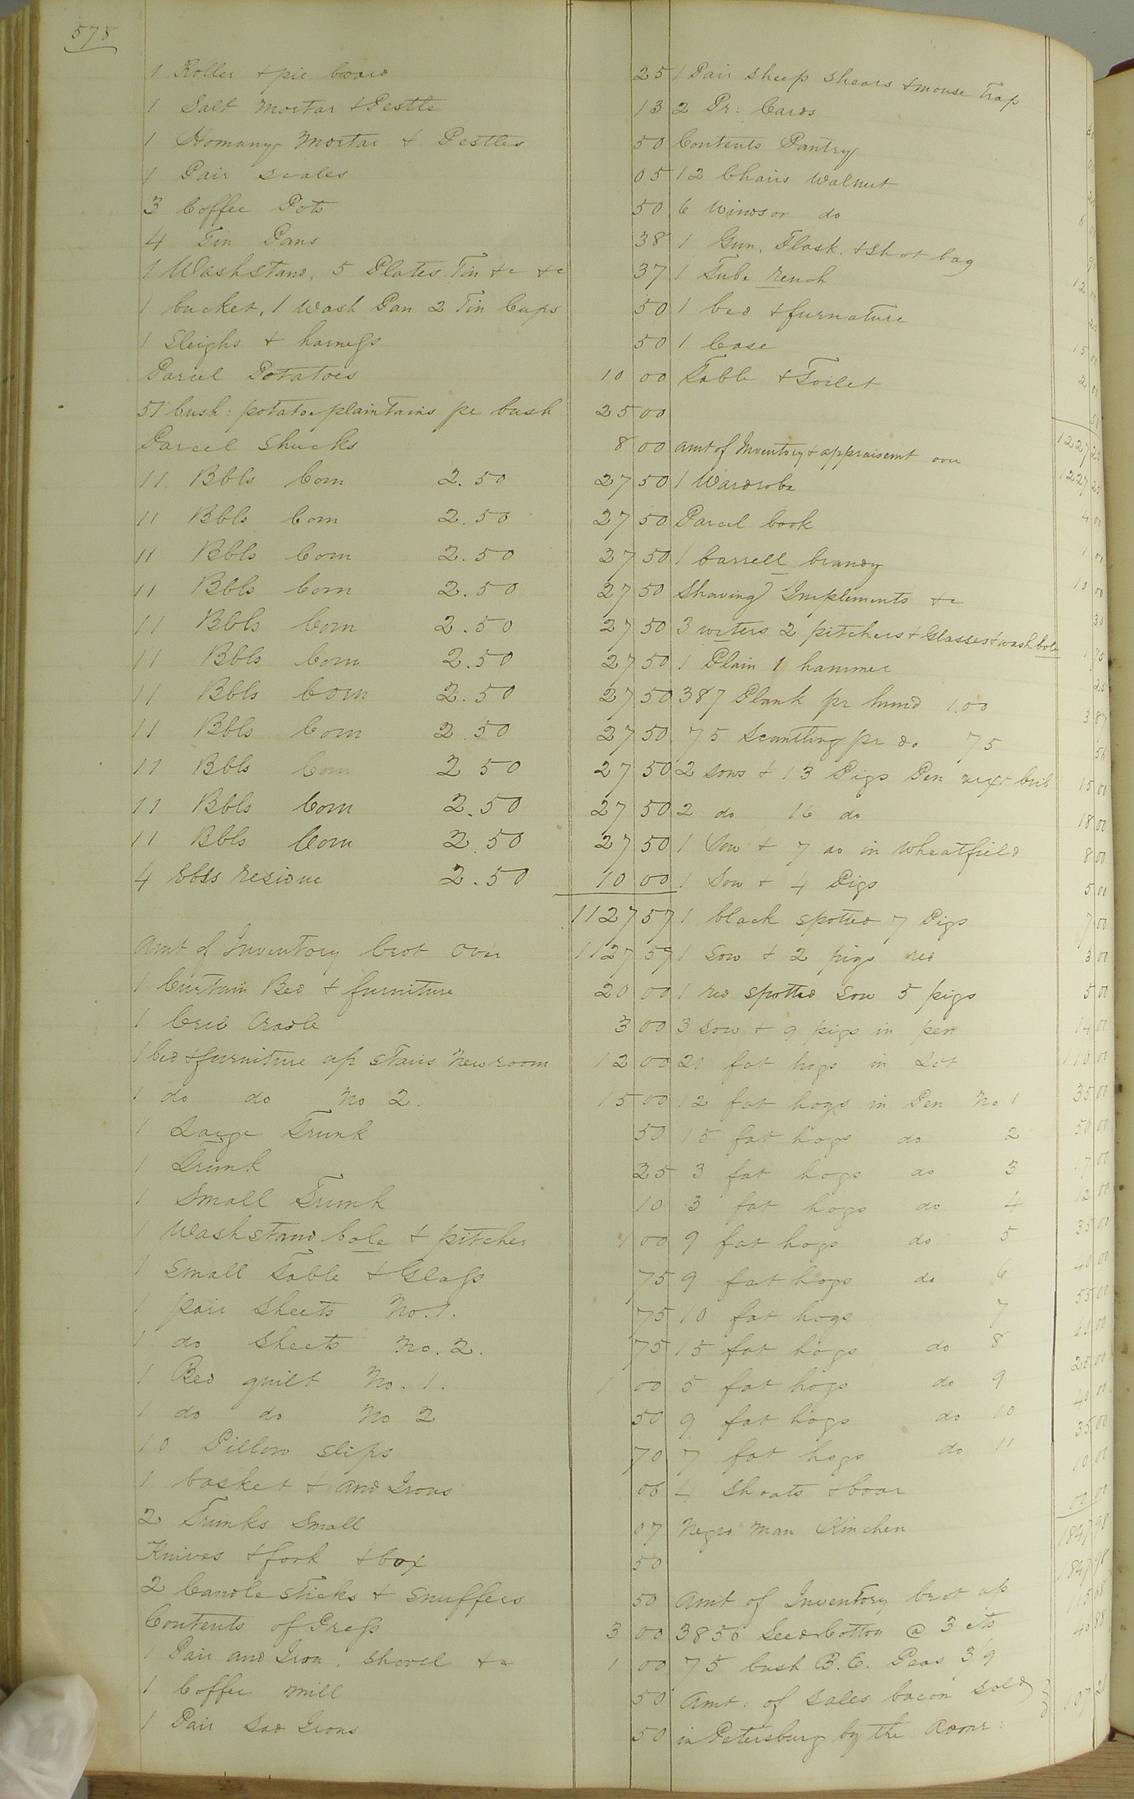 578
1 Roller & pie board 25
1 Salt Mortar & Pestle 13
1 Homany Mortar & Pestles 50
1 Pair scales 05
3 Coffee Pots 50
4 Tin Pans 38
1 Washstand, 5 Plates Tin &c &c 37
1 bucket, 1 Wash Pan 2 Tin Cups 50
1 Sleighs & harness 50
Parcel Potatoes 10 00
51 bush: potatoe plaintains pe bush 25 00
Parcel Shucks 8 00
11 Bbls Corn 2.50 27 50
11 Bbls Corn 2.50 27 50
11 Bbls Corn 2.50 27 50
11 Bbls Corn 2.50 27 50
11 Bbls Corn 2.50 27 50
11 Bbls Corn 2.50 27 50
11 Bbls Corn 2.50 27 50
11 Bbls Corn 2.50 27 50
11 Bbls Corn 2 50 27 50
11 Bbls Corn 2.50 27 50
11 Bbls Corn 2.50 27 50
4 Bbls residue 2.50 10 00
1127 57
Amt of Inventory brot over 1127 57
1 Curtain Bed & furniture 20 00
1 Crib Cradle 3 00
1 bed & furniture up stairs New room 12 00
1 do do No 2. 15 00
1 Large Trunk 50
1 Trunk 25
1 Small Trunk 10
1 Washstand bole & pitcher 1 00
1 Small Table & Glass 75
1 pair Sheets No. 1. 75
1 do Sheets No. 2. 75
1 Bed quilt No. 1. 1 00
1 do do No 2 50
10 Pillow slips 70
1 basket & And Irons 06
2 Trunks Small 07
Knives & fork & box 50
2 Candlesticks & Snuffers 50
Contents of Press 3 00
1 Pair and Iron, Shovel &c 1 00
1 Coffee Mill 50
1 Pair Sad Irons 50
1 Pair sheep shears & mouse trap
2 Pr: Cards
Contents Pantry
12 Chairs Walnut
6 Windsor do
1 Gun, Flask, & Shot bag
1 Tube rench
1 bed & furnature
1 Case
Table & Toilet
Amt of Inventory & appraisemt over 1227 25
1 Wardrobe
Parcel book
1 barrell brandy
Shaving Impliments &c
3 wrters 2 pitchers & Glasses & wash bole
1 Plain 1 hammer
387 Plank pr hund 1.00
75 Scantling pr do 75
2 sows & 13 Pigs Pen next Crib 15 00
2 do 16 do 18 00
1 Sow & 7 do in Wheatfield 8 00
1 Sow & 4 Pigs 5 00
1 black spotted 7 Pigs 7 00
1 Sow & 2 pigs red 3 00
1 red spotted Sow 5 pigs 5 00
3 Sow & 9 pigs in pen 14 00
21 fat hogs in Lot 110 00
12 fat hogs in Pen No 1 35 00
15 fat hogs do 2 50 00
3 fat hogs do 3
3 fat hogs do 4 12 00
9 fat hogs do 5 35 00
9 fat hogs do 6 40 00
10 fat hogs 7 55 00
15 fat hogs do 8
5 fat hogs do 9
9 fat hogs do 10 40 00
7 fat hogs do 11 35 00
4 Shoats & boar 10 00
Negro Man Kinchen
Amt of Inventory brot up
3856 Seed Cotton @ 3 cts
75 bush B. E. Peas 3/9
Amt: of Sales bacon sold
in Petersburg by the Admr: